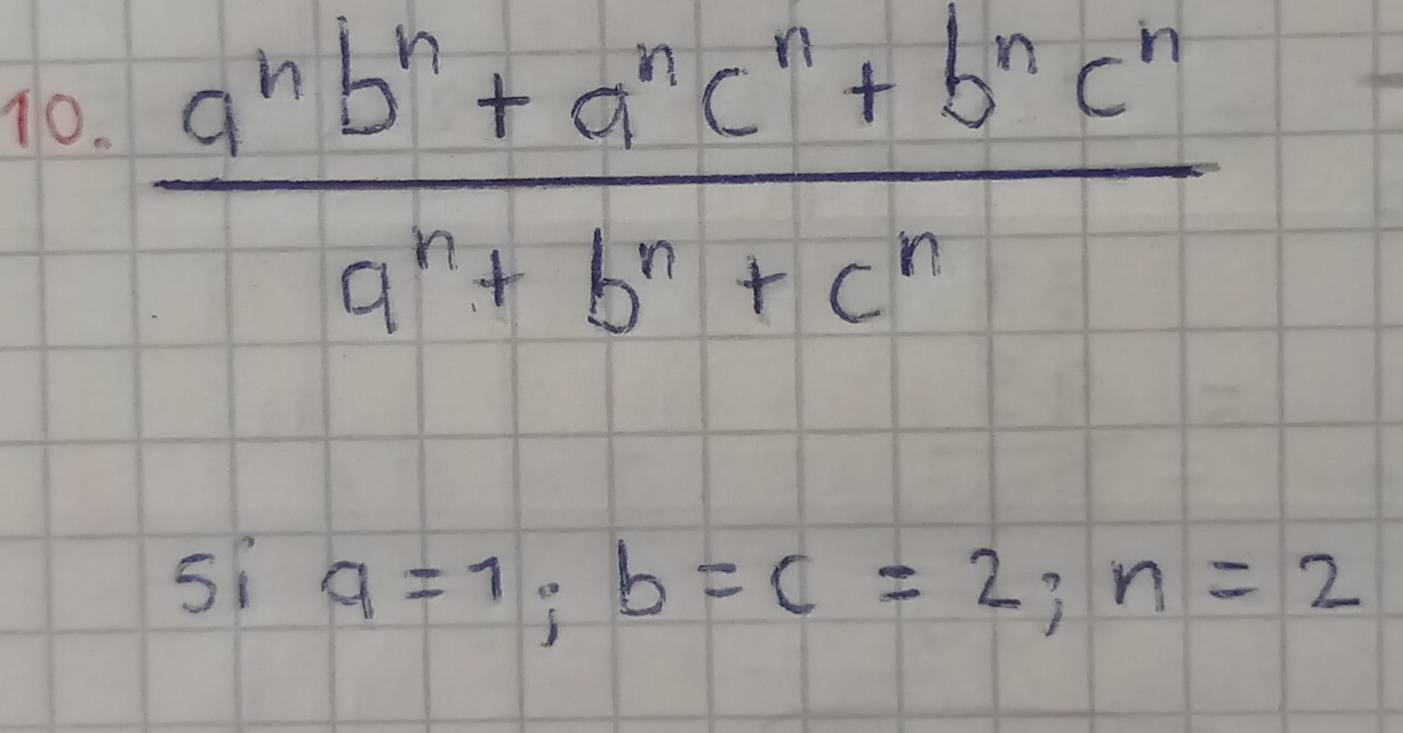 10. aⁿbⁿ + aⁿcⁿ + bⁿcⁿ
aⁿ + bⁿ + cⁿ
si a = 1; b = c = 2; n = 2